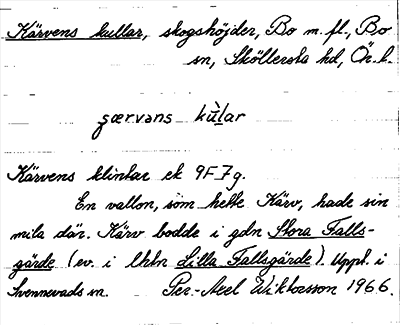 Kärvens kullar, skogshöjder, Bo m.fl., Bo
sn, Sköllersta hd, Ör. l.
særvans kù̀lar
Kärvens klintar ek 9F7g.
En vallon, som hette Kärv, hade sin
mila där. Kärv bodde i gdn Stora Falls-
gärde (ev. i lhtn Lilla Fallsgärde). Uppt. i
Svennevads sn. Per-Axel Wiktorsson 1966.